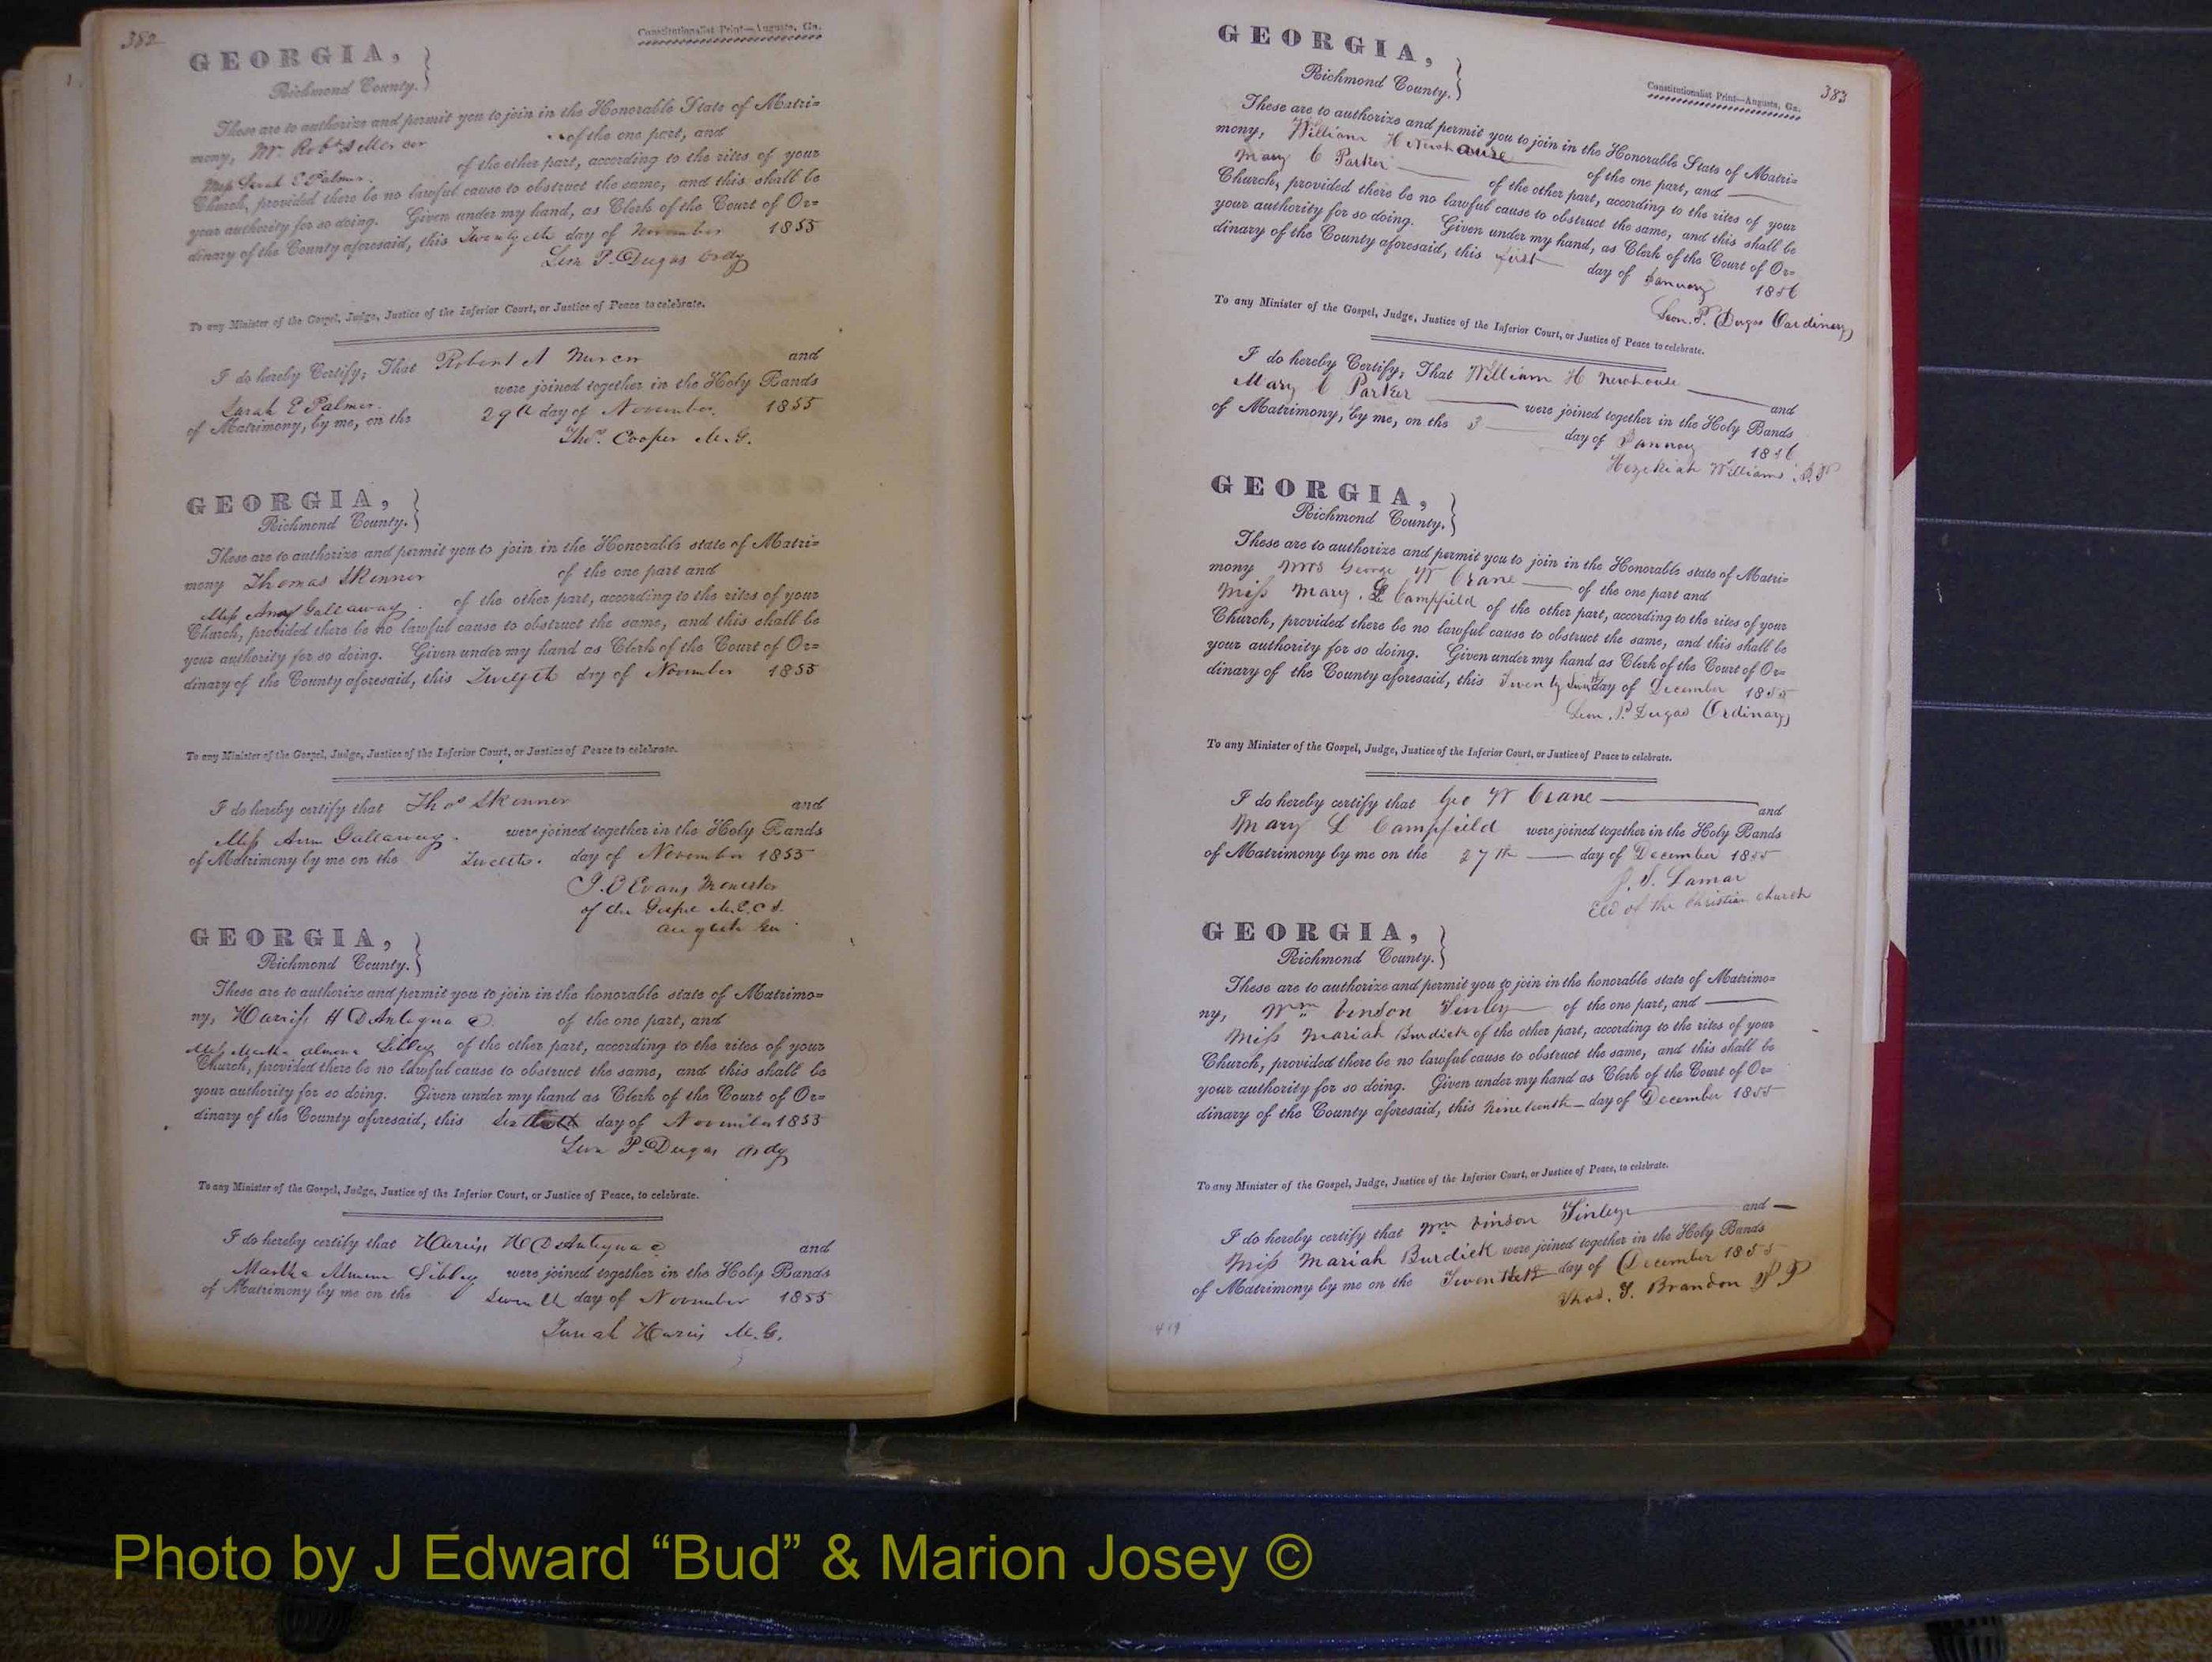 382
Constitutionalist Print—Augusta, Ga.
GEORGIA,
Richmond County.
These are to authorize and permit you to join in the Honorable State of Matri=
mony, Mr. Robt A Mercer of the one part, and
Miss Sarah E Palmer. of the other part, according to the rites of your
Church, provided there be no lawful cause to obstruct the same, and this shall be
your authority for so doing. Given under my hand, as Clerk of the Court of Or=
dinary of the County aforesaid, this day of November 1855
Leon P. Dugas Ordy
To any Minister of the Gospel, Judge, Justice of the Inferior Court, or Justice of Peace to celebrate.
I do hereby Certify, That Robert A Mercer and
Sarah E Palmer. were joined together in the Holy Bands
of Matrimony, by me, on the 29th day of November. 1855
Thos. Cooper M.G.
GEORGIA,
Richmond County.
These are to authorize and permit you to join in the Honorable state of Matri=
mony Thomas Skinner of the one part and
Miss Ann Gallaway. of the other part, according to the rites of your
Church, provided there be no lawful cause to obstruct the same, and this shall be
your authority for so doing. Given under my hand as Clerk of the Court of Or=
dinary of the County aforesaid, this Twelfth day of November 1855
To any Minister of the Gospel, Judge, Justice of the Inferior Court, or Justice of Peace to celebrate.
I do hereby certify that Thos Skinner and
Miss Ann Gallaway. were joined together in the Holy Bands
of Matrimony by me on the day of November 1855
J. B Evans
of the M.E.C.S.
GEORGIA,
Richmond County.
These are to authorize and permit you to join in the honorable state of Matrimo=
ny, Harriss H D'Antignac of the one part, and
Miss Martha Almena Sibley of the other part, according to the rites of your
Church, provided there be no lawful cause to obstruct the same, and this shall be
your authority for so doing. Given under my hand as Clerk of the Court of Or=
dinary of the County aforesaid, this day of November 1855
Leon P. Dugas Ordy
To any Minister of the Gospel, Judge, Justice of the Inferior Court, or Justice of Peace, to celebrate.
I do hereby certify that Harriss H D'Antignac and
Martha Almena Sibley were joined together in the Holy Bands
of Matrimony by me on the Seventh day of November 1855
Juriah Harris M.G.
383
Constitutionalist Print—Augusta, Ga.
GEORGIA,
Richmond County.
These are to authorize and permit you to join in the Honorable State of Matri=
mony, William H Newhouse of the one part, and
Mary C Parker of the other part, according to the rites of your
Church, provided there be no lawful cause to obstruct the same, and this shall be
your authority for so doing. Given under my hand, as Clerk of the Court of Or=
dinary of the County aforesaid, this first day of January 1856
Leon. P. Dugas Oardinary
To any Minister of the Gospel, Judge, Justice of the Inferior Court, or Justice of Peace to celebrate.
I do hereby Certify, That William H Newhouse and
Mary C Parker were joined together in the Holy Bands
of Matrimony, by me, on the 3 day of January 1856
Hezekiah Williams J.P
GEORGIA,
Richmond County.
These are to authorize and permit you to join in the Honorable state of Matri=
mony George W Crane of the one part and
Miss Mary. L Campfield of the other part, according to the rites of your
Church, provided there be no lawful cause to obstruct the same, and this shall be
your authority for so doing. Given under my hand as Clerk of the Court of Or=
dinary of the County aforesaid, this day of December 1855
Leon. P. Dugas Ordinary
To any Minister of the Gospel, Judge, Justice of the Inferior Court, or Justice of Peace to celebrate.
I do hereby certify that Geo W Crane and
Mary L Campfield were joined together in the Holy Bands
of Matrimony by me on the 27th day of December 1855
J. S. Lamar
Eld of the Christian church
GEORGIA,
Richmond County.
These are to authorize and permit you to join in the honorable state of Matrimo=
ny, Wm Vinson Finley of the one part, and
Miss Mariah Burdick of the other part, according to the rites of your
Church, provided there be no lawful cause to obstruct the same, and this shall be
your authority for so doing. Given under my hand as Clerk of the Court of Or=
dinary of the County aforesaid, this nineteenth day of December 1855
To any Minister of the Gospel, Judge, Justice of the Inferior Court, or Justice of Peace, to celebrate.
I do hereby certify that Wm Vinson Finley and
Miss Mariah Burdick were joined together in the Holy Bands
of Matrimony by me on the day of December 1855
Thos. G. Brandon J P
419
Photo by J Edward “Bud” & Marion Josey ©